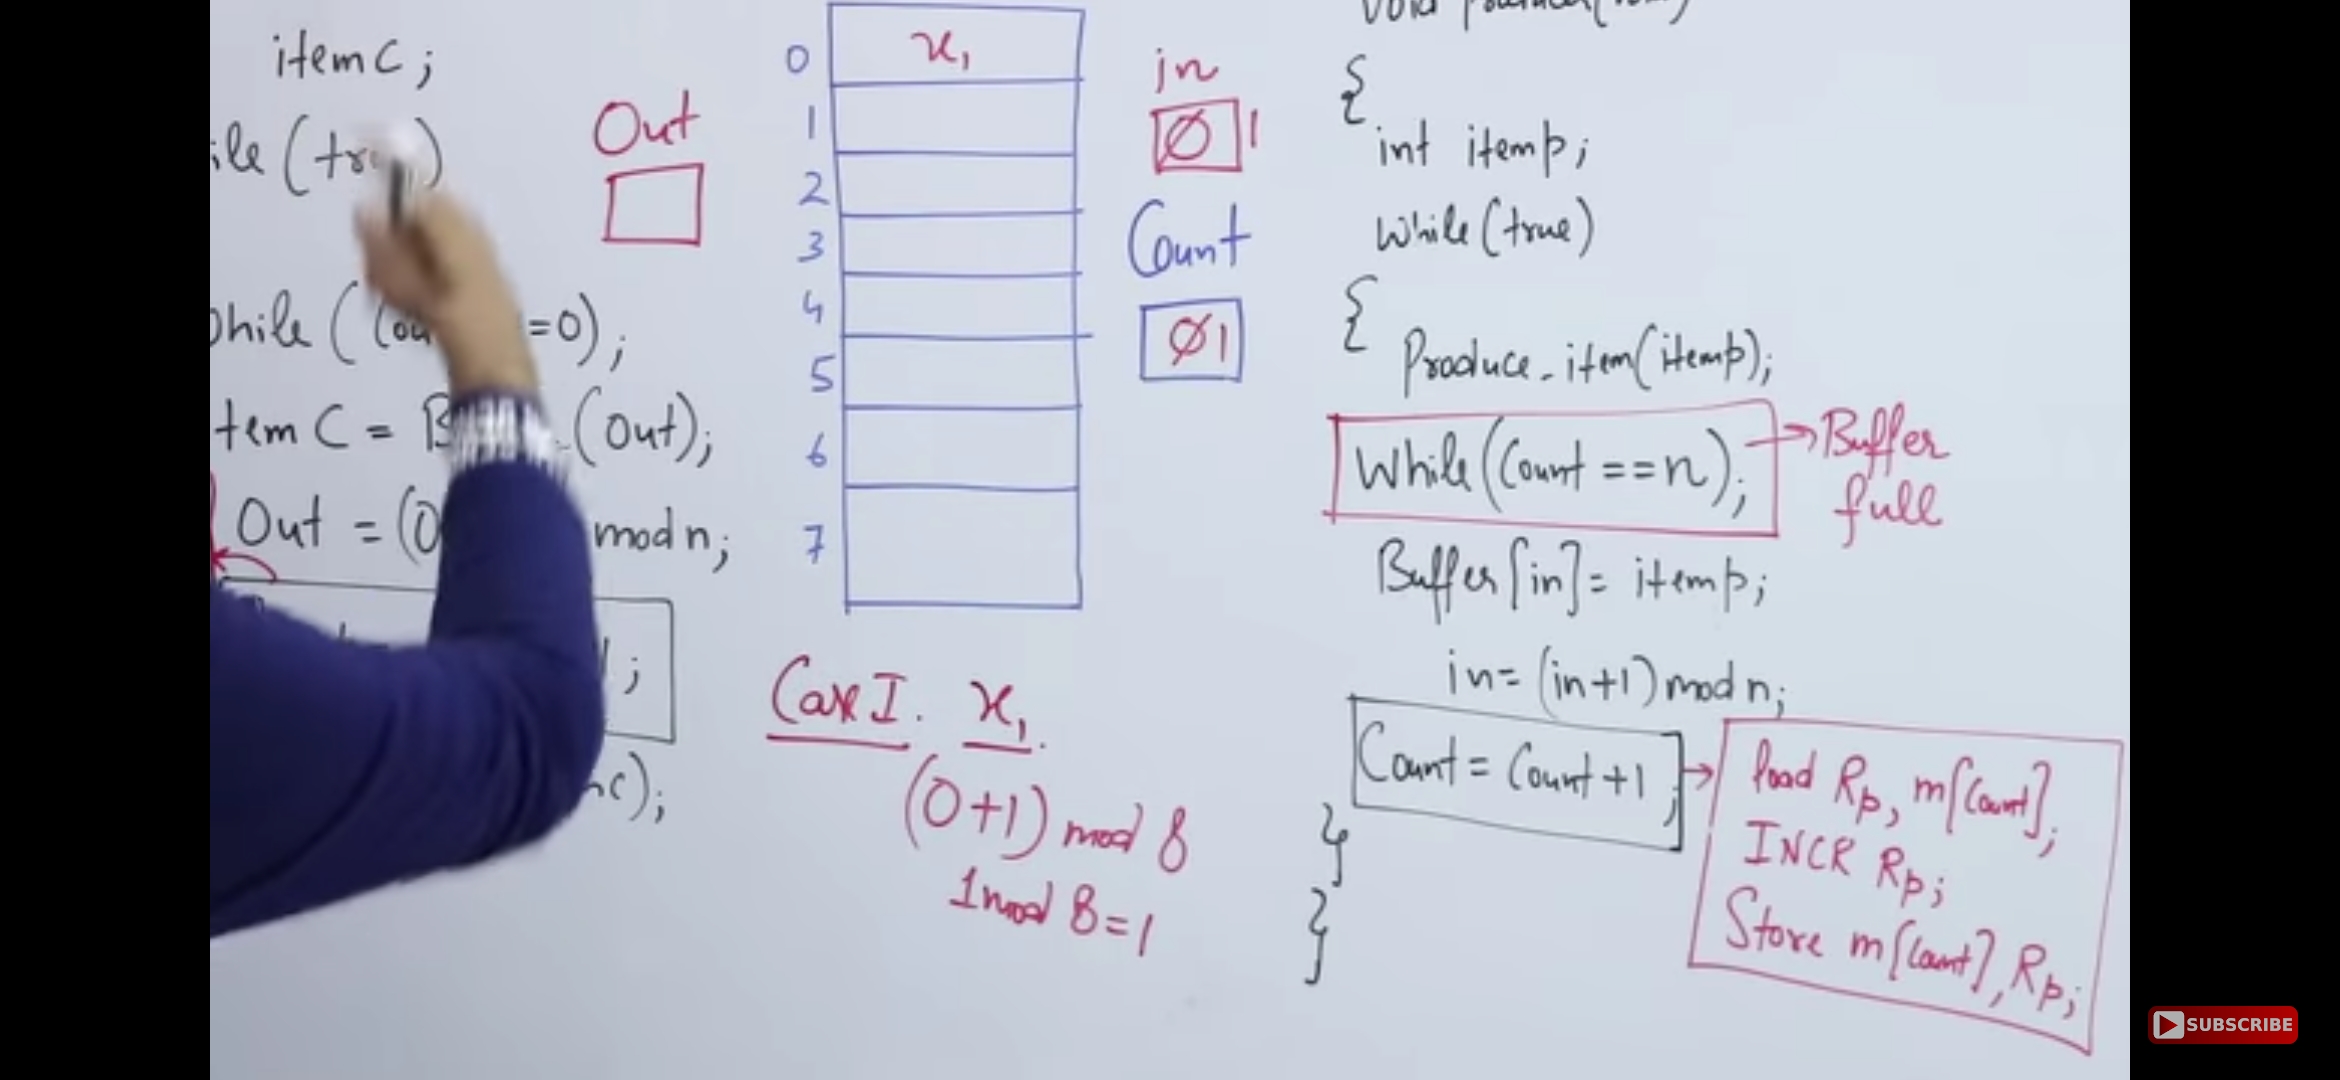 itemc;
(true)
Out
while ( =0);
C = (Out);
Out = mod n;
;
c);
0 x₁
1
2
3
4
5
6
7
in
0 1
Count
0 1
Case I. x₁.
(0+1) mod 8
1 mod 8 = 1
{
int itemp;
While(true)
{
Produce_item(itemp);
While(Count == n);
→ Buffer
full
Buffer[in] = itemp;
in = (in+1) mod n;
Count = Count + 1;
→ load Rp, m[Count];
INCR Rp;
Store m[Count], Rp;
}
}
SUBSCRIBE